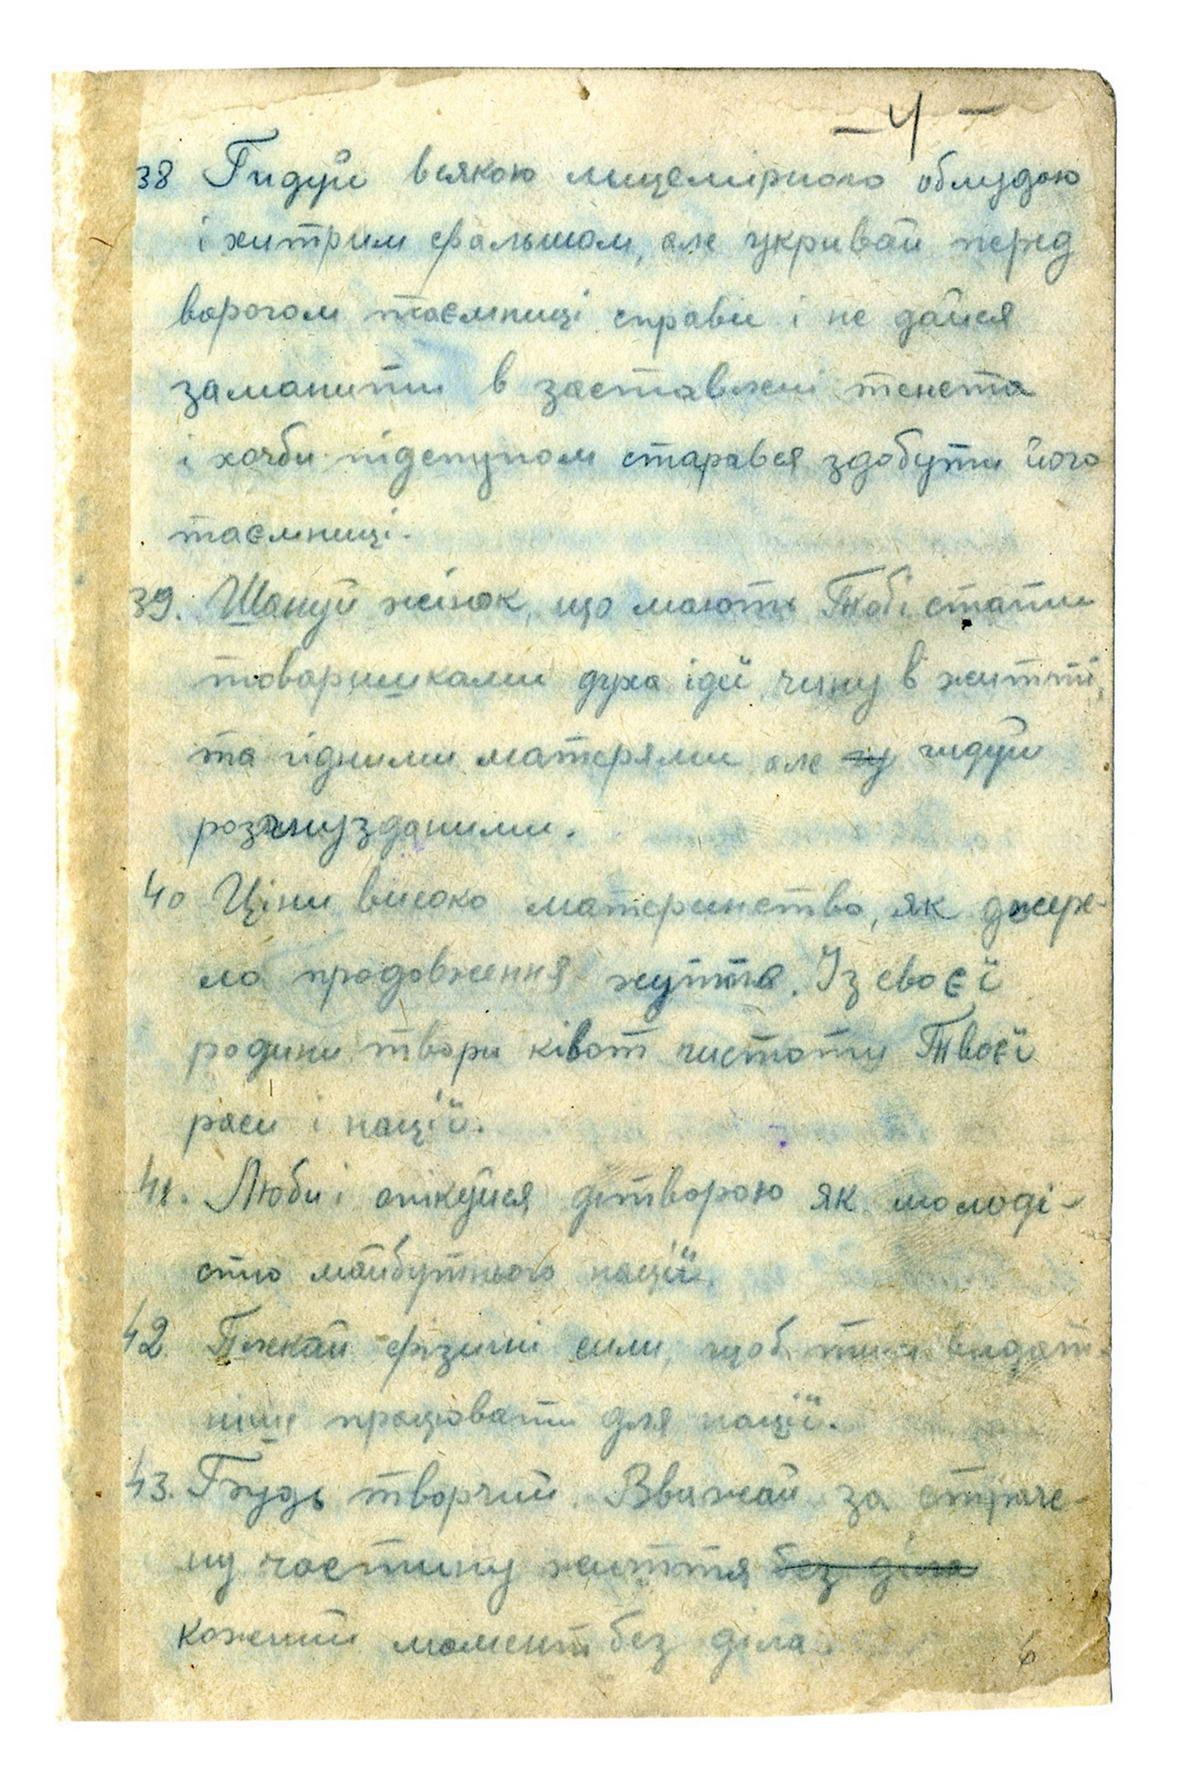 – 4 –
38 Гидуй всякою лицемірного облудою
і хитрим фальшом, але укривай перед
ворогом таємниці справи і не дайся
заманити в заставлені тенета
і хочби підступом старався здобути його
таємниці.
39. Шануй жінок, що мають Тобі стати
товаришками духа ідеї, чину в житті,
та гідними матерями, але гидуй
розгнузданими.
40 Ціни високо материнство, як джере-
ло продовження життя. Із своєї
родини твори ківот чистоти Твоєї
раси і нації.
41. Люби і опікуйся дітворою як молоді-
стю майбутнього нації.
42 Плекай фізичні сили, щоб тим видат-
ніше працювати для нації.
43. Будь творчий. Вважай за страче-
ну частину життя без діла
кожний момент без діла.
6